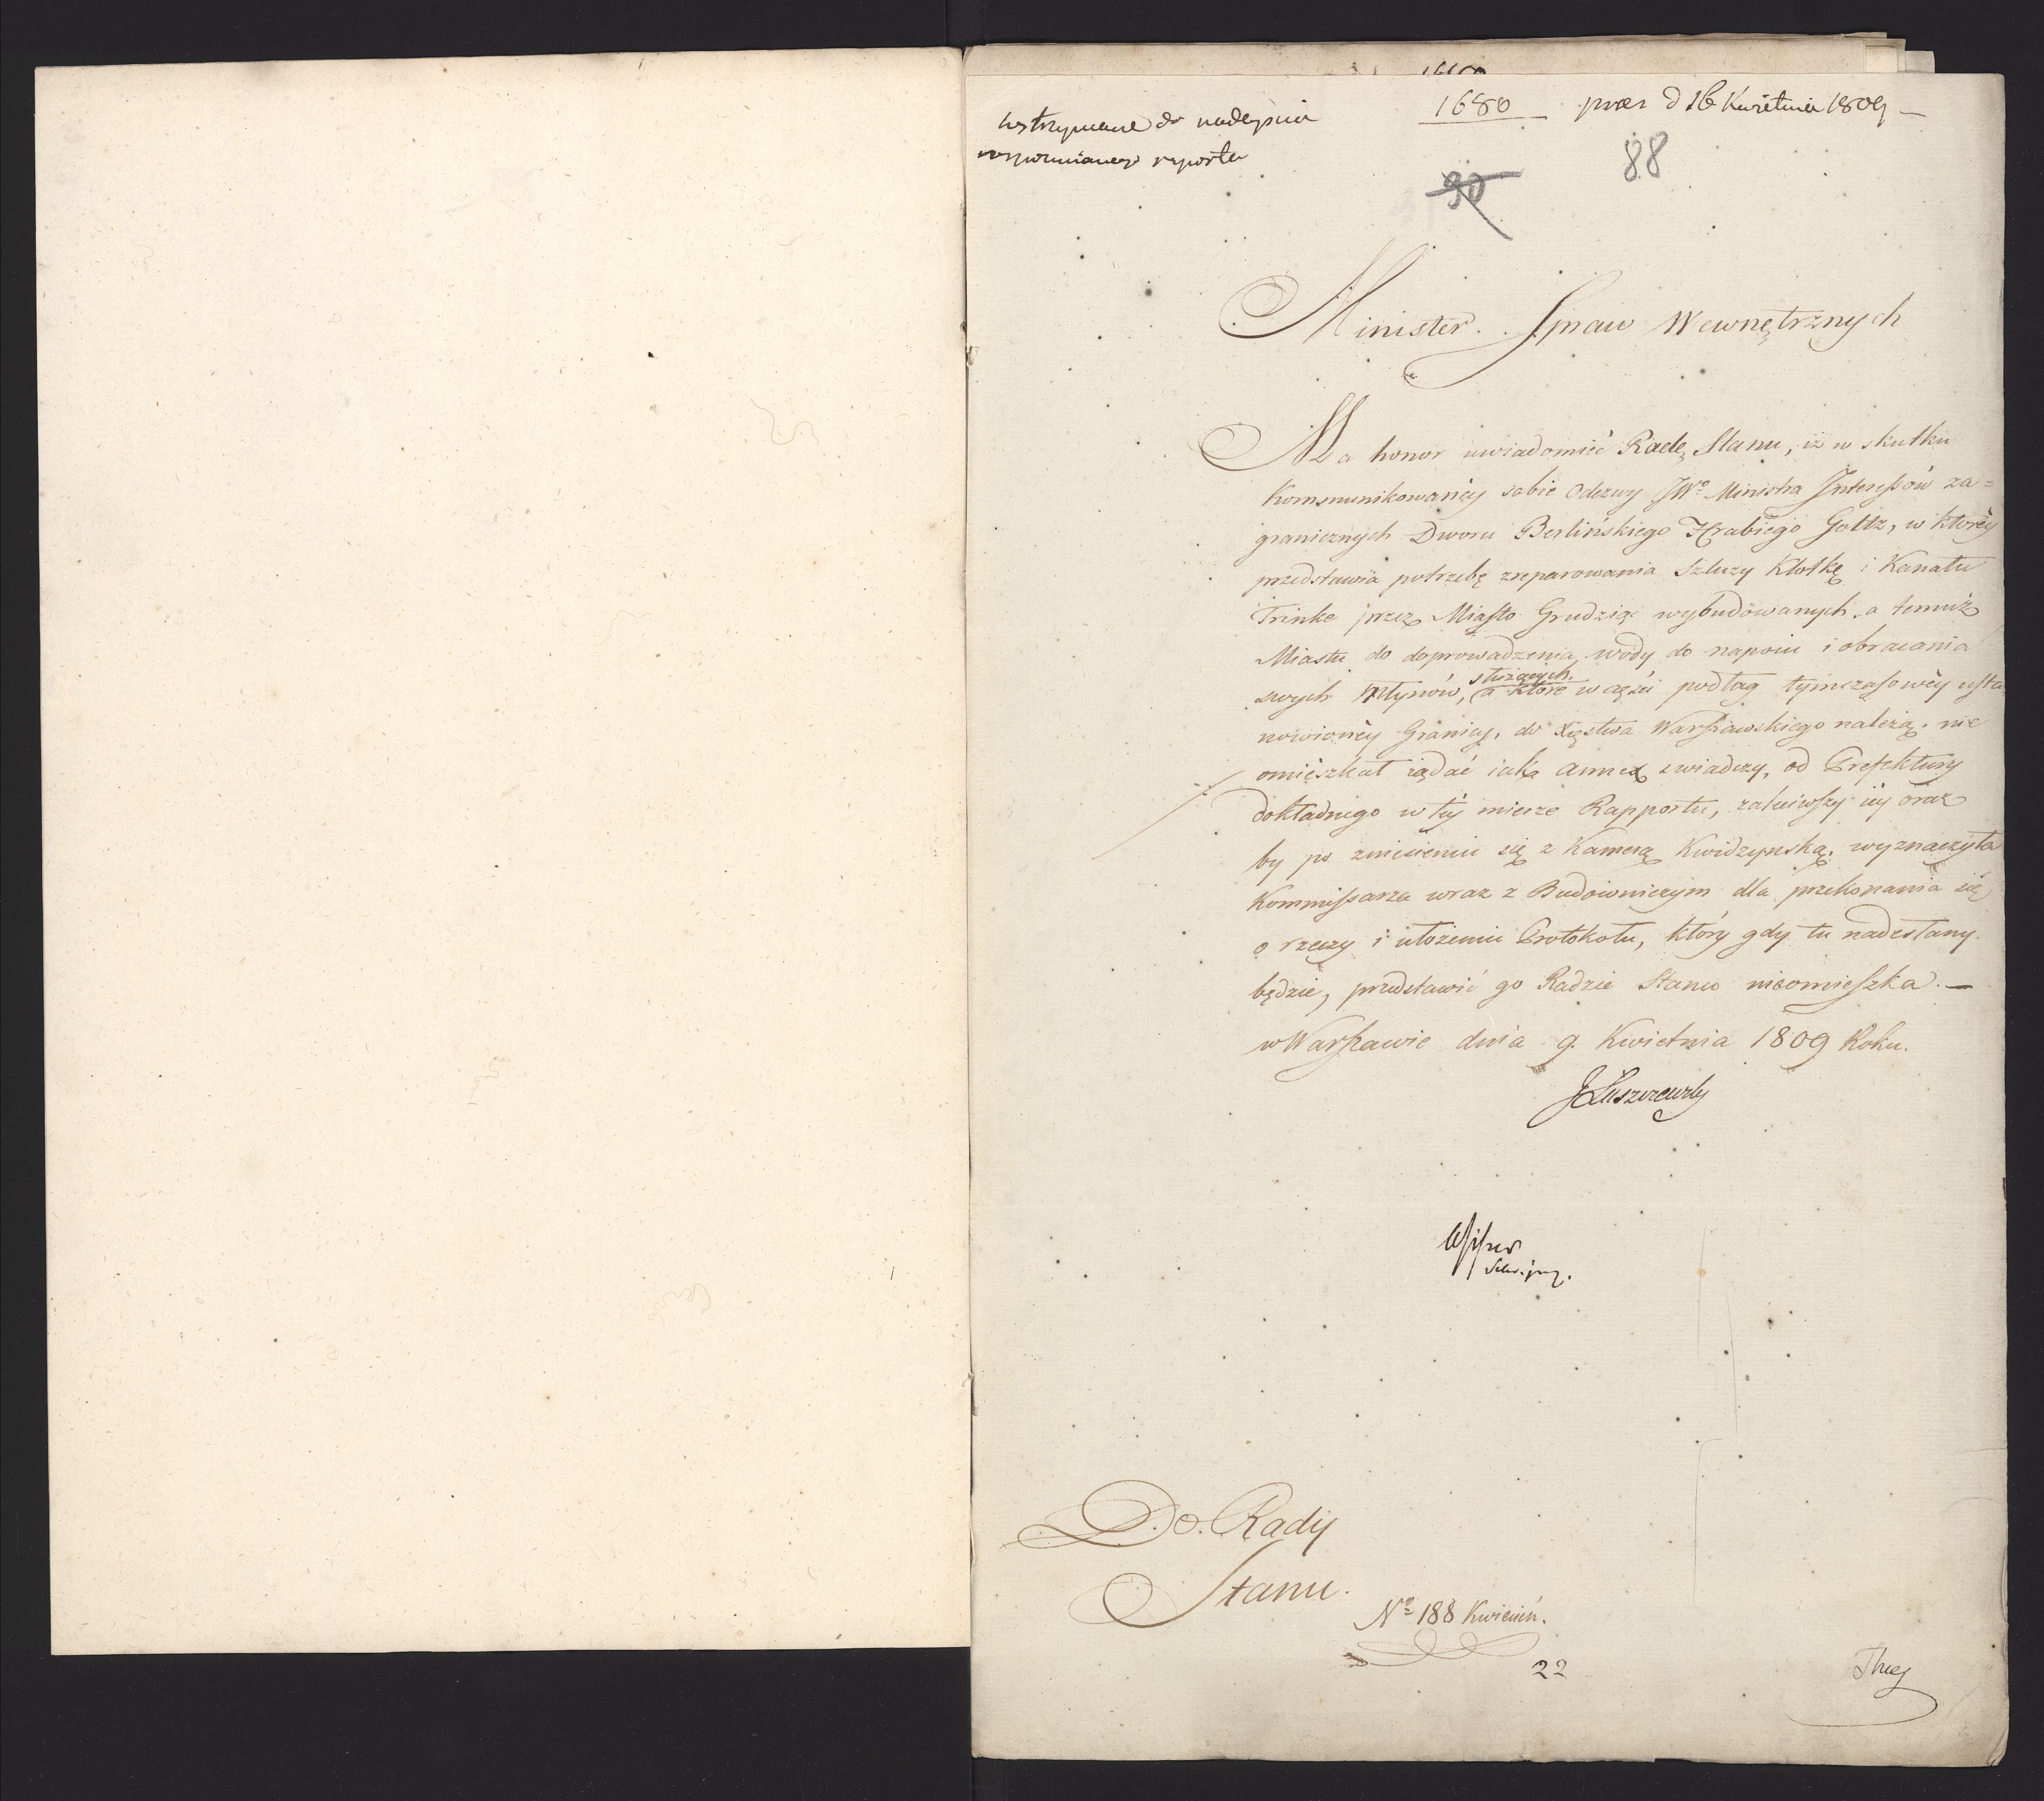 wstrzymane do nadeyścia
wspomnianego raportu
1680 prez d 16 Kwietnia 1809
88
90
Minister Spraw Wewnętrznych
Ma honor uwiadomić Radę Stanu, iż w skutku
kommunikowanéy sobie Odezwy JWo Ministra Interessów za=
granicznych Dworu Berlińskiego Hrabiego Goltz, w któréy
przedstawia potrzebę zreparowania szluzy Klotkę i Kanału
Trinke przez Miasto Grudziąc wybudowanych, a temuż
Miastu do doprowadzenia wody do napoiu i obracania
służących,
swych Młynów, a które w części podług tymczasowéy usta
nowionéy Granicy, do Xięstwa Warszawskiego należą. nie
omieszkał żądać iak annex świadczy, od Prefektury
dokładnego w téy mierze Rapportu, zaleciwszy iéy oraz
by po zniesieniu się z Kamerą Kwidzynską, wyznaczyła
Kommissarza wraz z Budowniczym dla przekonania się
o rzeczy i ułożeniu Protokołu, który gdy tu nadesłany
będzie, przedstawić go Radzie Stanu nieomieszka. —
w Warszawie dnia 9. Kwietnia 1809 Roku.
JŁuszczewsky
Do Rady
Stanu.
No 188 Kwiecień.
22